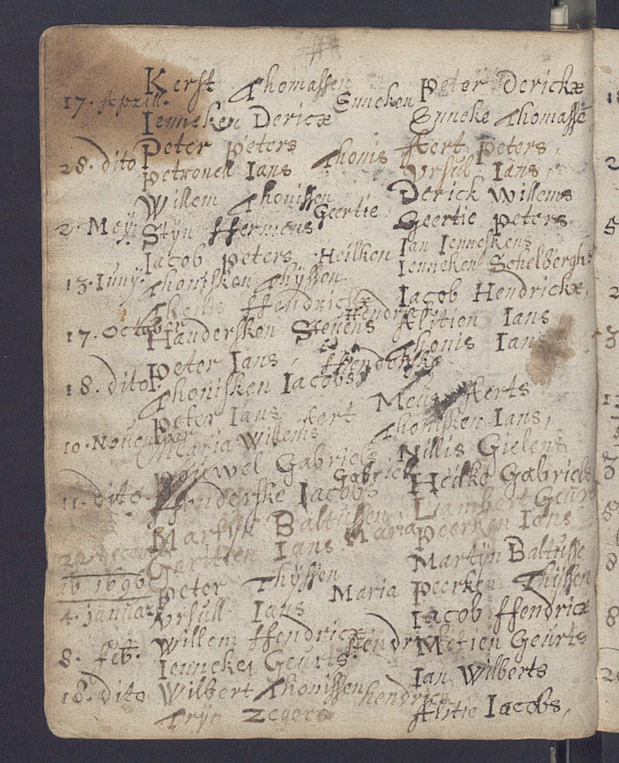 Kerst Thomassen Peter Derickx
17. Aprill. Enneken
Ienneken Dericx Enneke Thomasse
Peter Peters Aert Peters,
28. dito Thonis
Petronell Ians Ursul Ians,
Willem Thonissen Derick Willems
2. Meij Geertie
Stijn Hermens Geertie Peters
Iacob Peters Heilken Ian Iennekens
13. Iunij Thonisken Thijssen Ienneken Schelberghs
Thonis Hendrickx Iacob Hendrickx
17. October Hendrick
Handersken Stevens Alitien Ians
Peter Ians, Thonis Ians
18. dito
Thonisken Iacobs Meus Aerts
Peter Ians Aert Thonisken Ians,
10. November
Maria Willems Nillis Gielens
Gabriels Gabriel Heilke Gabriels
11. dito
Henderske Iacobs Lambert Geurts
Martijn Baltussen Maria Peerken Ians
Gertien Ians Martijn Baltusse
Ao 1696
Peter Thijssen Maria Peerken Thijssen
4. januar
Ursull Ians Iacob Hendricx
Willem Hendricx Hendrick Metien Geurts
8. feb.
Ienneken Geurts. Ian Wilberts
18. dito Wilbert Thonissen hendrick
Trijn Zegers Alitie Iacobs,